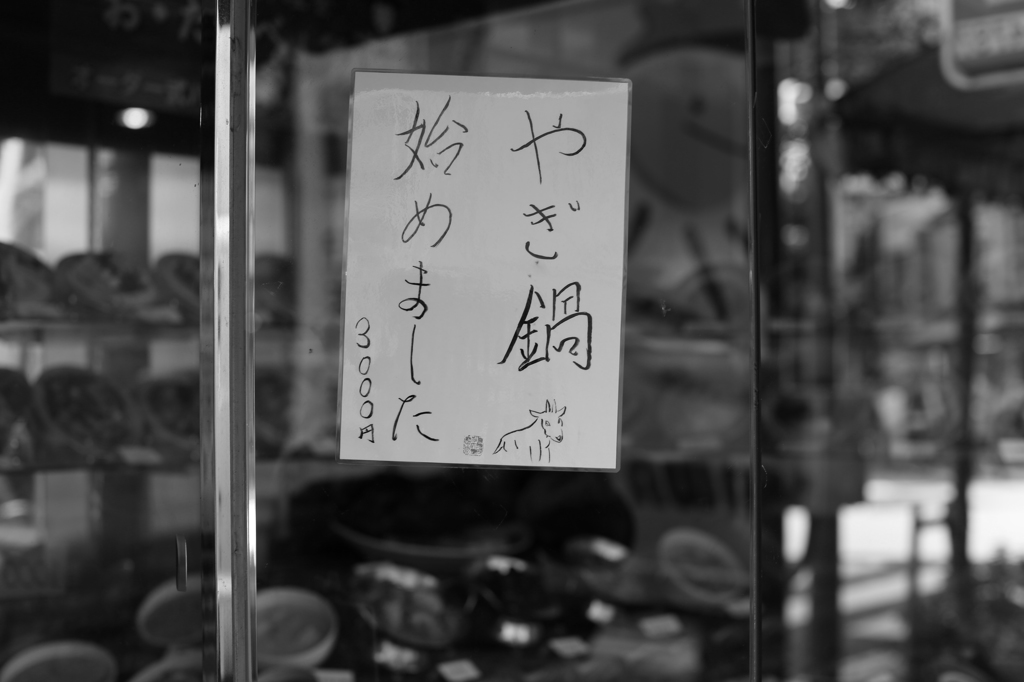 やぎ鍋
始めました
3000円